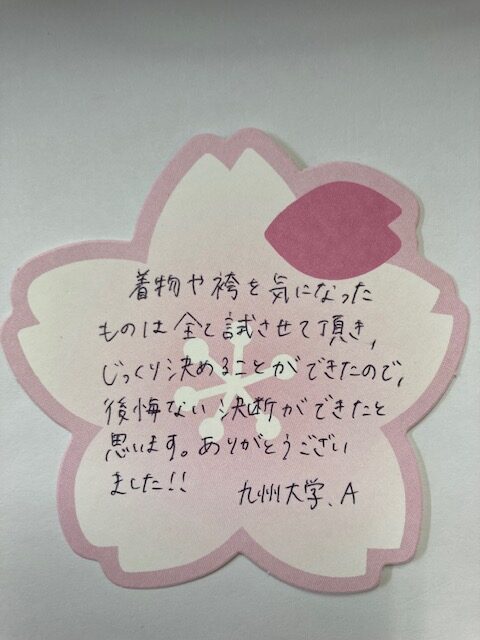 着物や袴を気になった
ものは全て試させて頂き、
じっくり決めることができたので、
後悔ない決断ができたと
思います。ありがとうござい
ました!!
九州大学、A